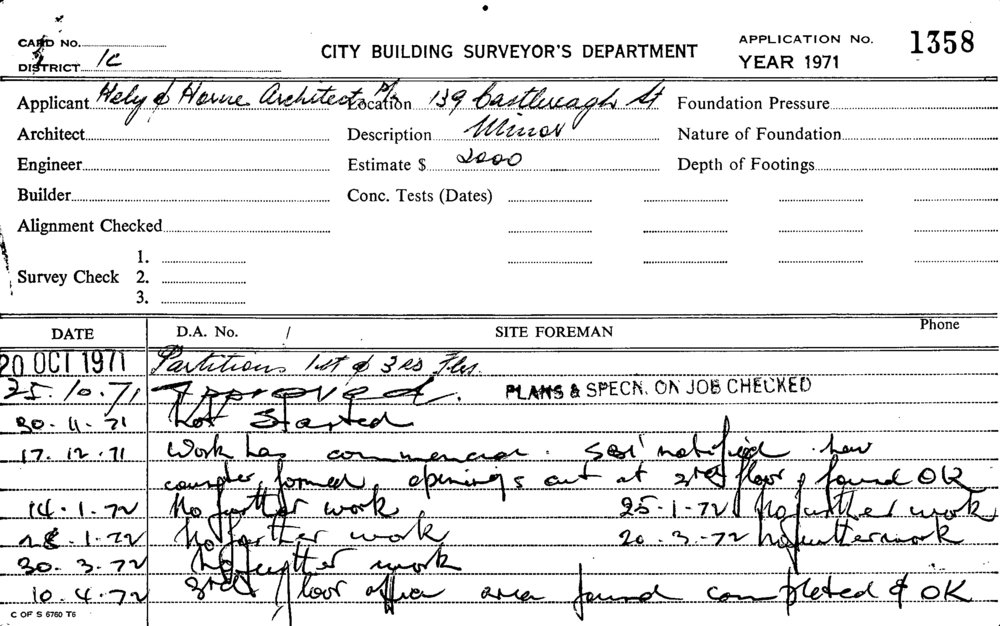 CARD No.
DISTRICT 1C
CITY BUILDING SURVEYOR'S DEPARTMENT
APPLICATION No. 1358
YEAR 1971
Applicant Hely & Horne Architects P/L Location 139 Castlereagh St Foundation Pressure
Architect Description Minor Nature of Foundation
Engineer Estimate $ 2000 Depth of Footings
Builder Conc. Tests (Dates)
Alignment Checked
1.
Survey Check 2.
3.
DATE D.A. No. / SITE FOREMAN Phone
20 OCT 1971 Partitions 1st & 3rd Flrs.
25.10.71 Approved. PLANS & SPECN. ON JOB CHECKED
30.11.71 Not Started
17.12.71 Work has commenced. notified. new
counter formed, openings cut at 3rd floor, found OK
14.1.72 No further work 25.1.72 No further work
28.1.72 No further work 20.3.72 No further work
30.3.72 No further work
10.4.72 3rd floor office area found completed & OK
C OF S 6760 T6